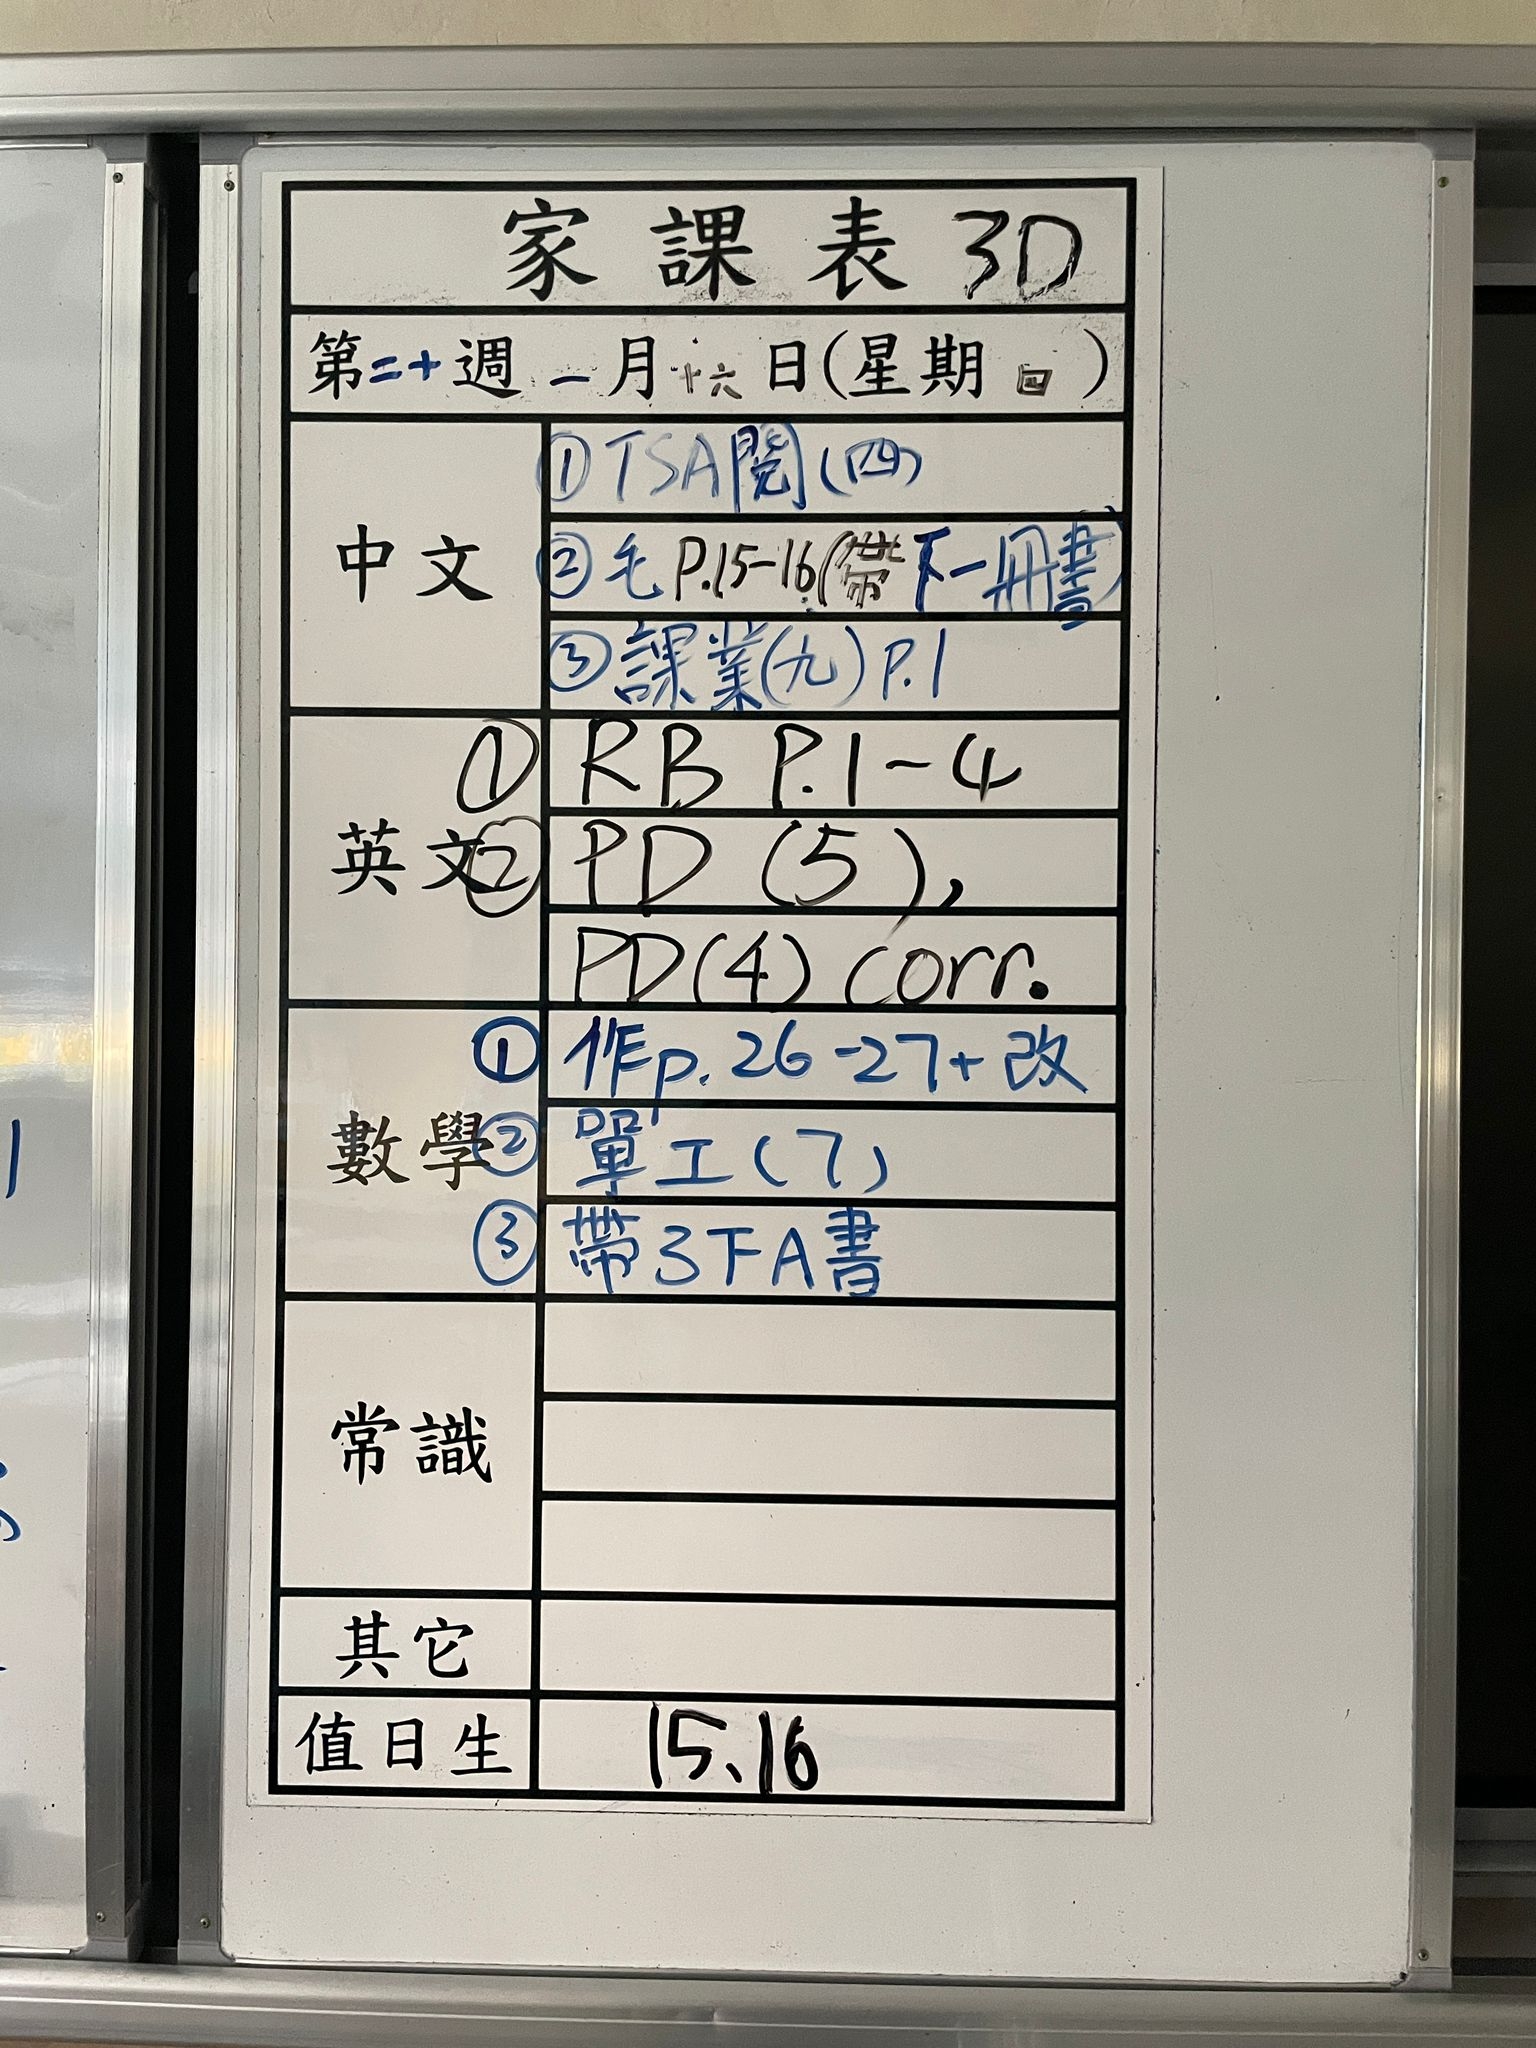 家課表 3D
第二十週 一月十六日(星期四)
中文
①TSA閱(四)
②毛P.15-16(帶下一冊書)
③課業(九)P.1
英文
① RB P.1-4
② PD (5),
PD(4) corr.
數學
① 作p.26-27+改
② 單工(7)
③ 帶3下A書
常識
其它
值日生
15、16